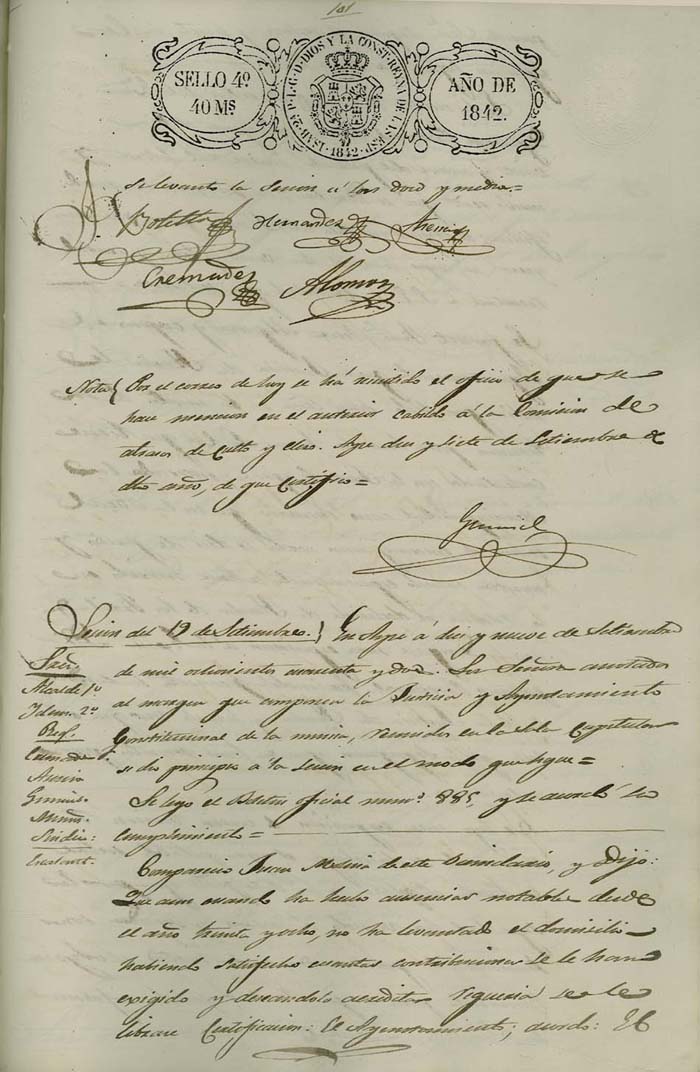 101
SELLO 4º
40 Ms.
ISAB. 2ª P. L. G. D. DIOS Y LA CONST. REYNA DE LAS ESP.
1842
AÑO DE
1842.
se levantó la sesion á las doce y media.=
Botella Hernandez Asensi
Cremades Alonso
Nota{ Por el correo de hoy se há remitido el oficio de que se
hace mencion en el anterior cabildo á la Comision de
atrasos de Culto y clero. Aspe diez y siete de Setiembre de
dho año, de que Certifico=
Sesion del 19 de Setiembre.} En Aspe á diez y nueve de Setiembre
Sres.
de mil ochocientos cuarenta y dos. Los Señores anotados
Alcalde 1º
al margen que componen la Justicia y Ayuntamiento
Idem. 2º
Constitucional de la misma, reunidos en la Sala Capitular
Regs.
se dio principio á la sesion en el modo que sigue=
Cremades
Asensi
Se leyó el Boletin oficial num.º 885, y se acordó su
cumplimiento=
Sindico:
Comparecio Juan de este Vecindario, y dijo:
Que aun cuando ha hecho ausencias notables desde
el año treinta y ocho, no ha levantado el domicilio
habiendo satisfecho cuantas contribuciones se le han
exigido y deseandolo acreditar requeria se le
librase Certificacion: El Ayuntamiento, acordó: Se